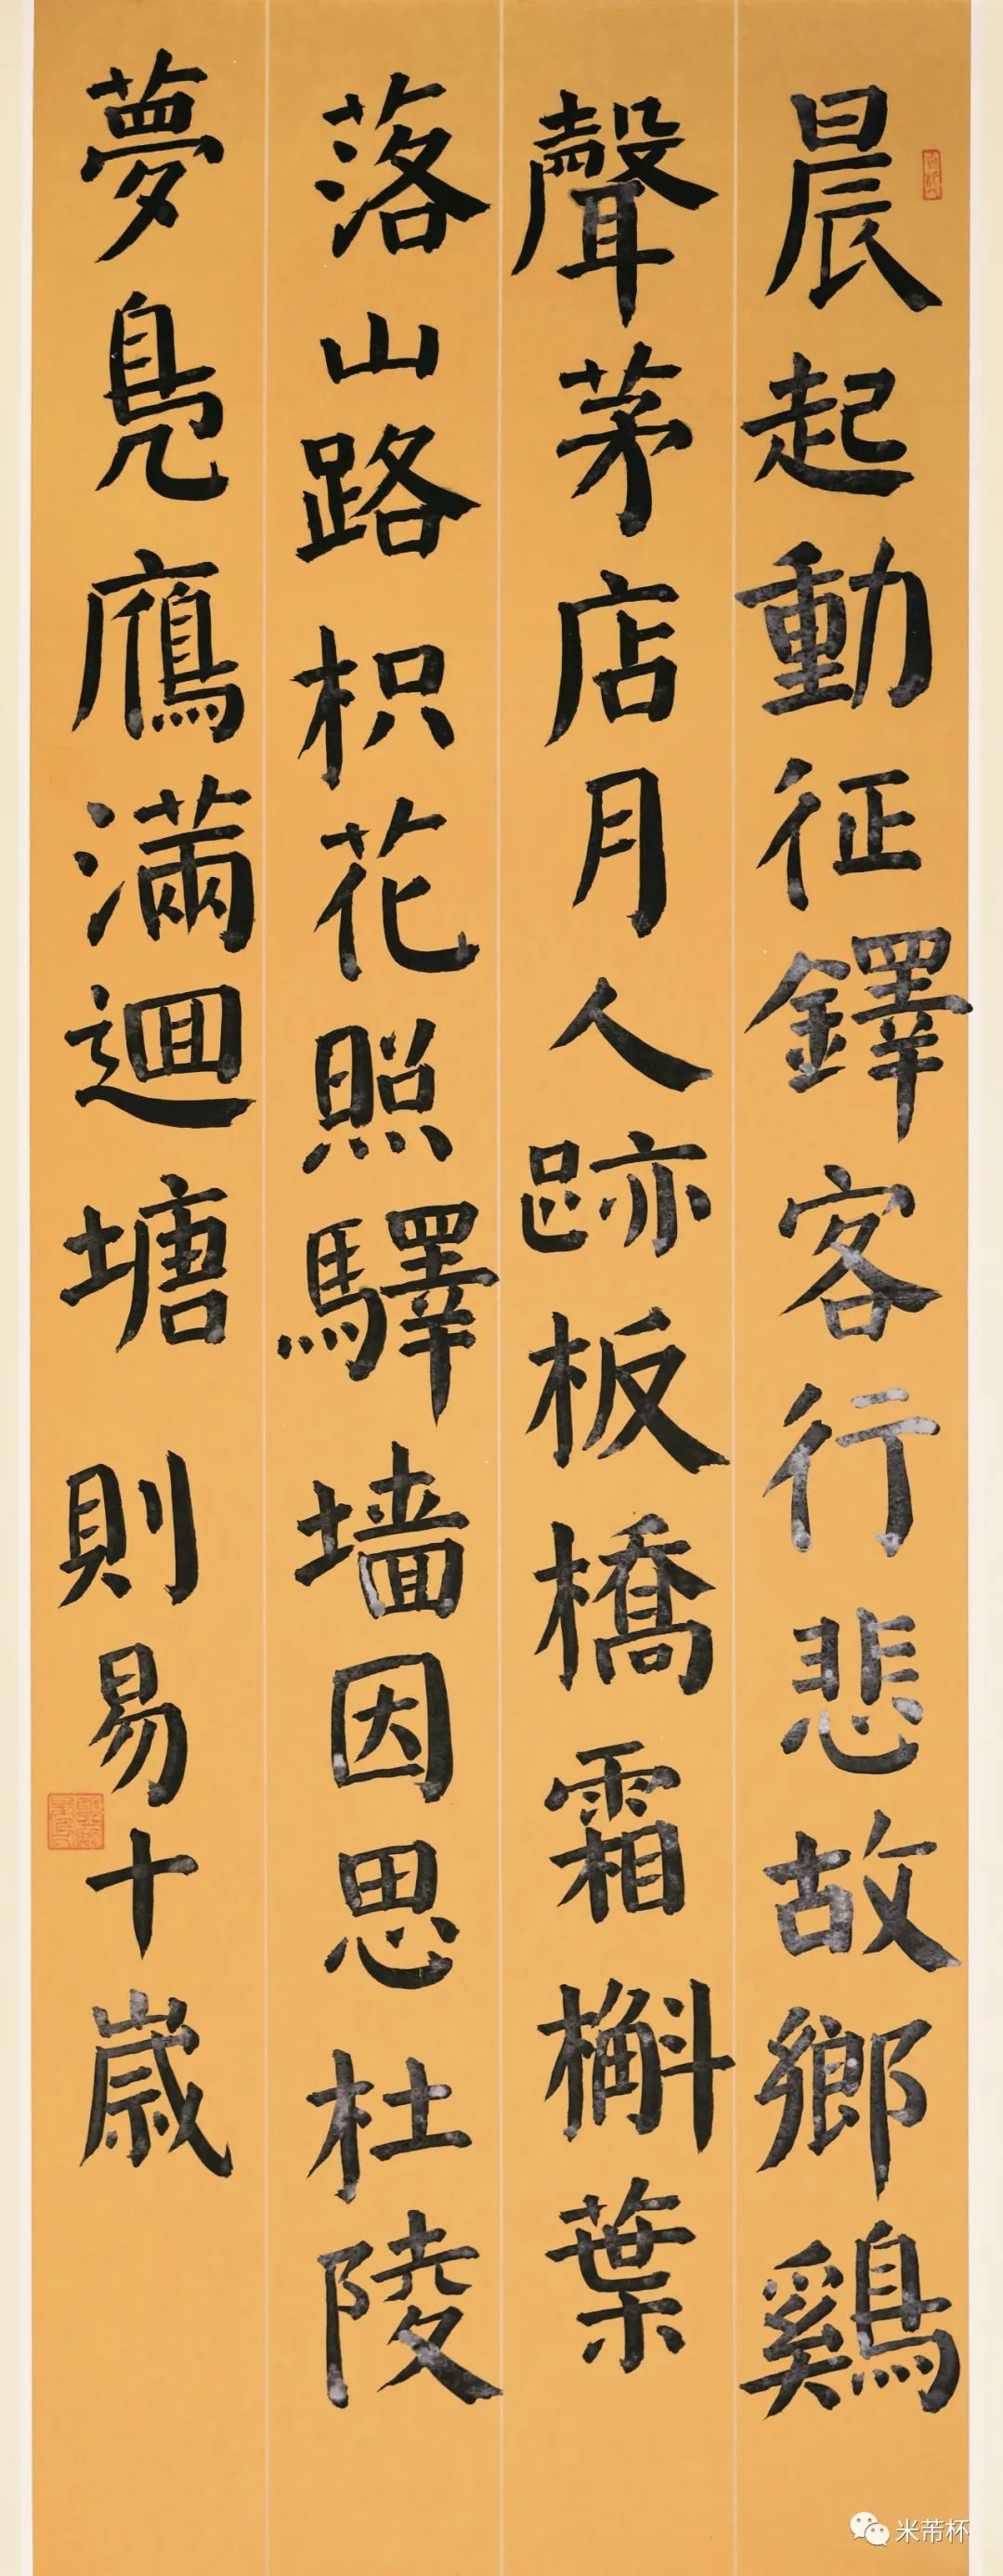 晨起動征鐸客行悲故鄉鷄
聲茅店月人跡板橋霜槲葉
落山路枳花照驛墙因思杜陵
夢鳧鴈滿迴塘 則易十歲
米芾杯